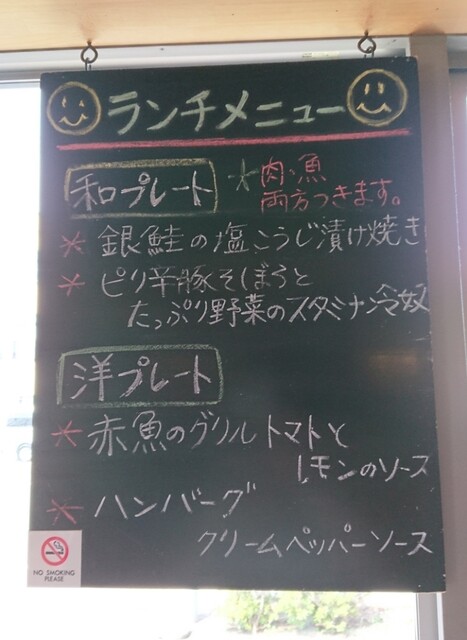 ランチメニュー
和プレート
*肉・魚
両方つきます。
* 銀鮭の塩こうじ漬け焼き
* ピリ辛豚そぼろと
たっぷり野菜のスタミナ冷奴
洋プレート
* 赤魚のグリルトマトと
レモンのソース
* ハンバーグ
クリームペッパーソース
NO SMOKING
PLEASE